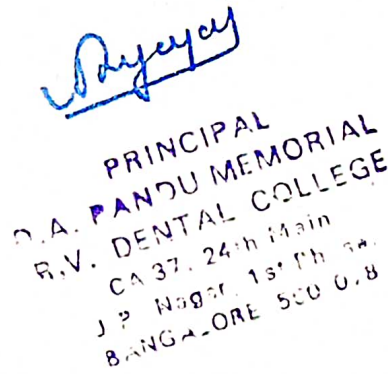 PRINCIPAL
D.A. PANDU MEMORIAL
R.V. DENTAL COLLEGE
CA 37, 24th Main
J P Nagar, 1st Ph
BANGALORE 560 078